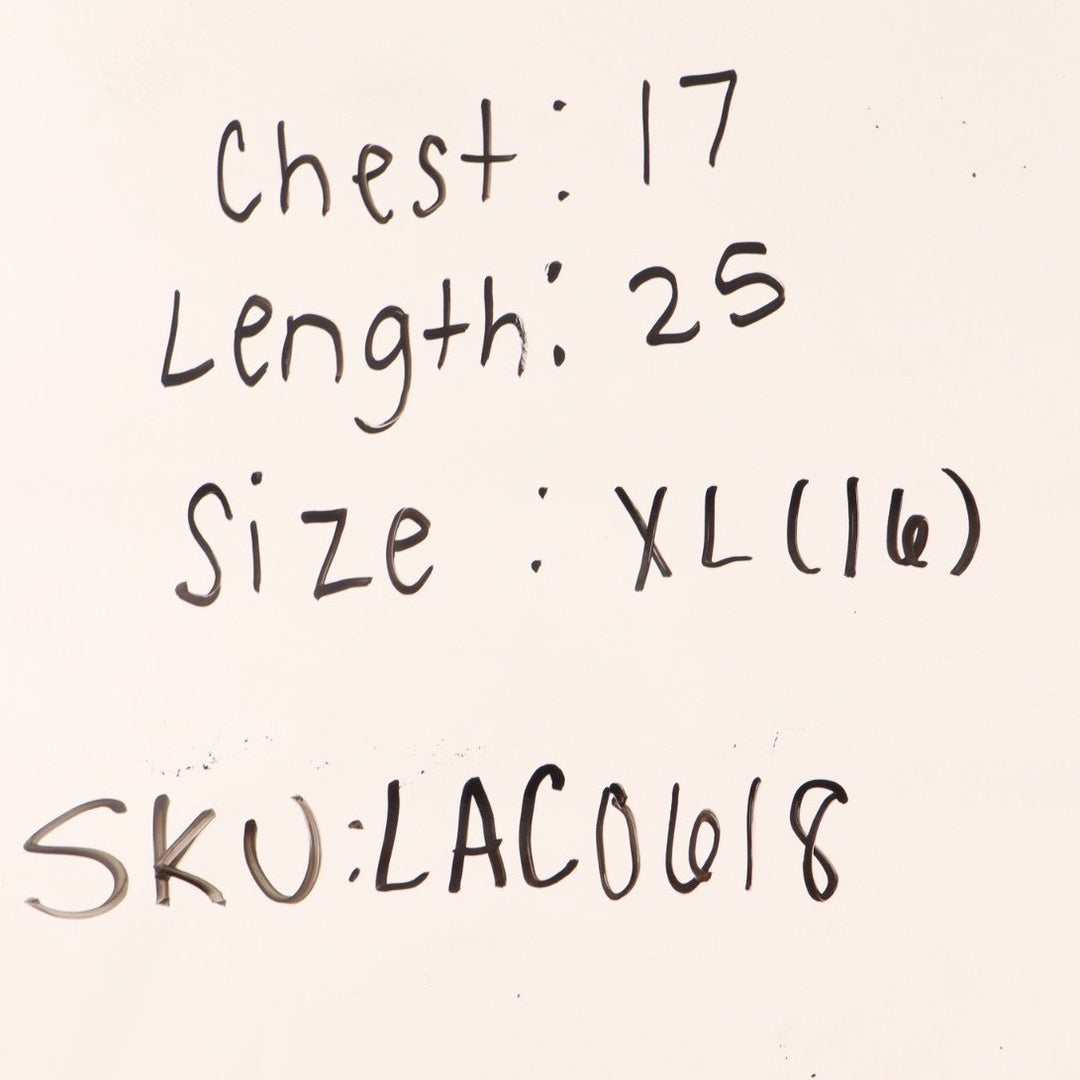 Chest: 17
Length: 25
Size : XL (16)
SKU: LAC0618